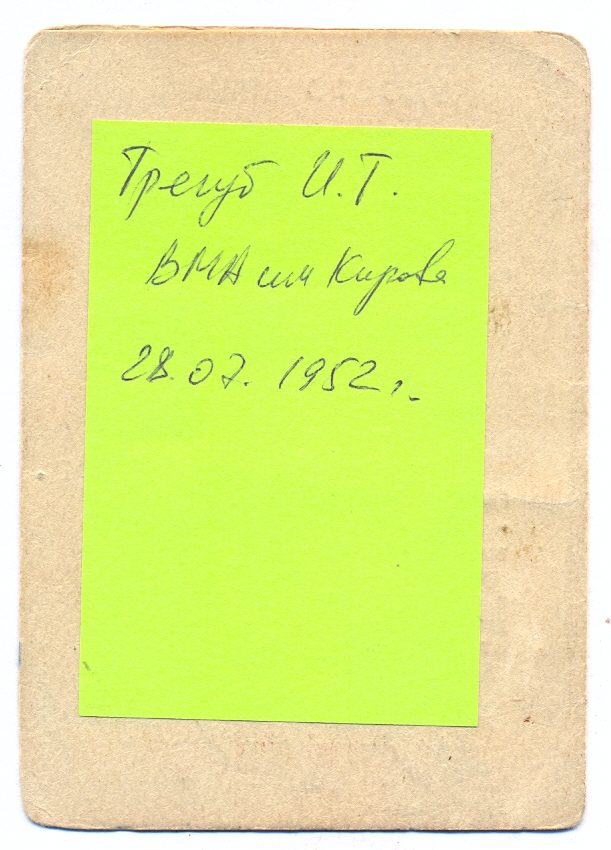 Трегуб И.Т.
ВМА им Кирова
28.07.1952 г.